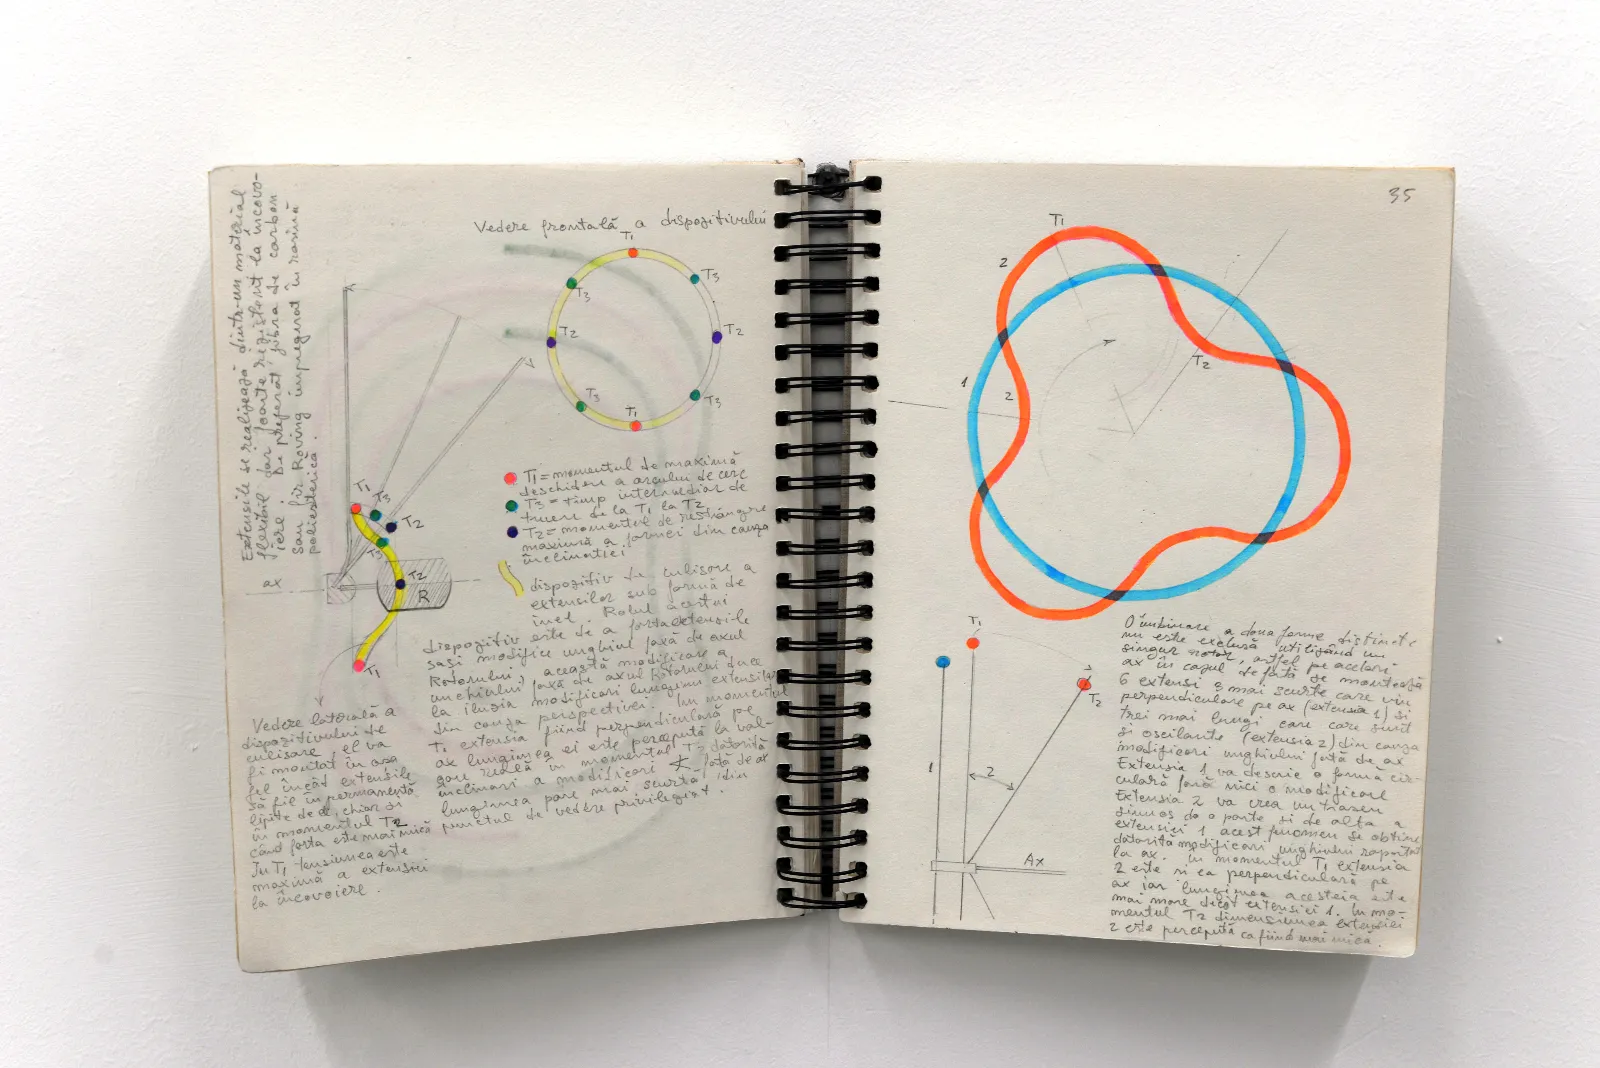 Extensiile se realizează dintr-un material
flexibil dar foarte rezistent la încovo-
iere. De preferat fibra de carbon
sau fir Roving impregnat în rasină
poliesterică.
Vedere frontală a dispozitivului
T1
T3
T3
T2
T2
T3
T3
T1
T1
T3
T2
T3
T2
R
ax
T1
T1 = momentul de maximă
deschidere a arcului de cerc
T3 = timp intermediar de
trecere de la T1 la T2
T2 = momentul de restrângere
maximă a formei din cauza
înclinației
dispozitiv de culisare a
extensiilor sub formă de
inel. Rolul acestui
dispozitiv este de a forța extensiile
să-și modifice unghiul față de axul
Rotorului, această modificare a
unghiului față de axul Rotorului duce
la iluzia modificări lungimii extensiilor
din cauza perspectivei. În momentul
T1 extensia fiind perpendiculară pe
ax lungimea ei este percepută la val-
oare reală în momentul T2 datorită
înclinari a modificări față de ax
lungimea pare mai scurtă din
punctul de vedere privilegiat.
Vedere laterală a
dispozitivului de
culisare, el va
fi montat în așa
fel încât extensiile
să fie în permanență
lipite de el, chiar și
în momentul T2
când forța este mai mică
În T1 tensiunea este
maximă a extensiei
la încovoiere.
35
T1
2
T2
1
2
T1
T2
1
2
Ax
O îmbinare a doua forme distincte
nu este exclusă utilizând un
singur rotor, astfel pe același
ax în cazul de față se montează
6 extensi 3 mai scurte care vin
perpendiculare pe ax (extensia 1) și
trei mai lungi care care sunt
și oscilante (extensia 2) din cauza
modificari unghiului față de ax
Extensia 1 va descrie o formă cir-
culară fară nici o modificare
Extensia 2 va crea un traseu
sinuos de o parte și de alta a
extensiei 1 acest fenomen se obține
datorită modificari unghiului raportat
la ax. În momentul T1 extensia
2 este și ea perpendiculară pe
ax iar lungimea acesteia este
mai mare decât extensiei 1. În mo-
mentul T2 dimensiunea extensiei
2 este percepută ca fiind mai mică.